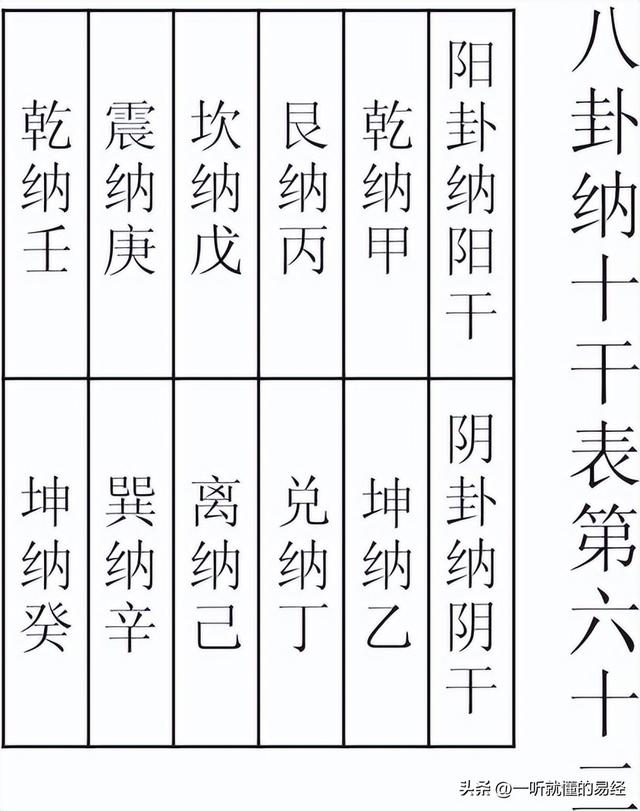 八卦纳十干表第六十
阳卦纳阳干
乾纳甲
艮纳丙
坎纳戊
震纳庚
乾纳壬
阴卦纳阴干
坤纳乙
兑纳丁
离纳己
巽纳辛
坤纳癸
头条 @一听就懂的易经